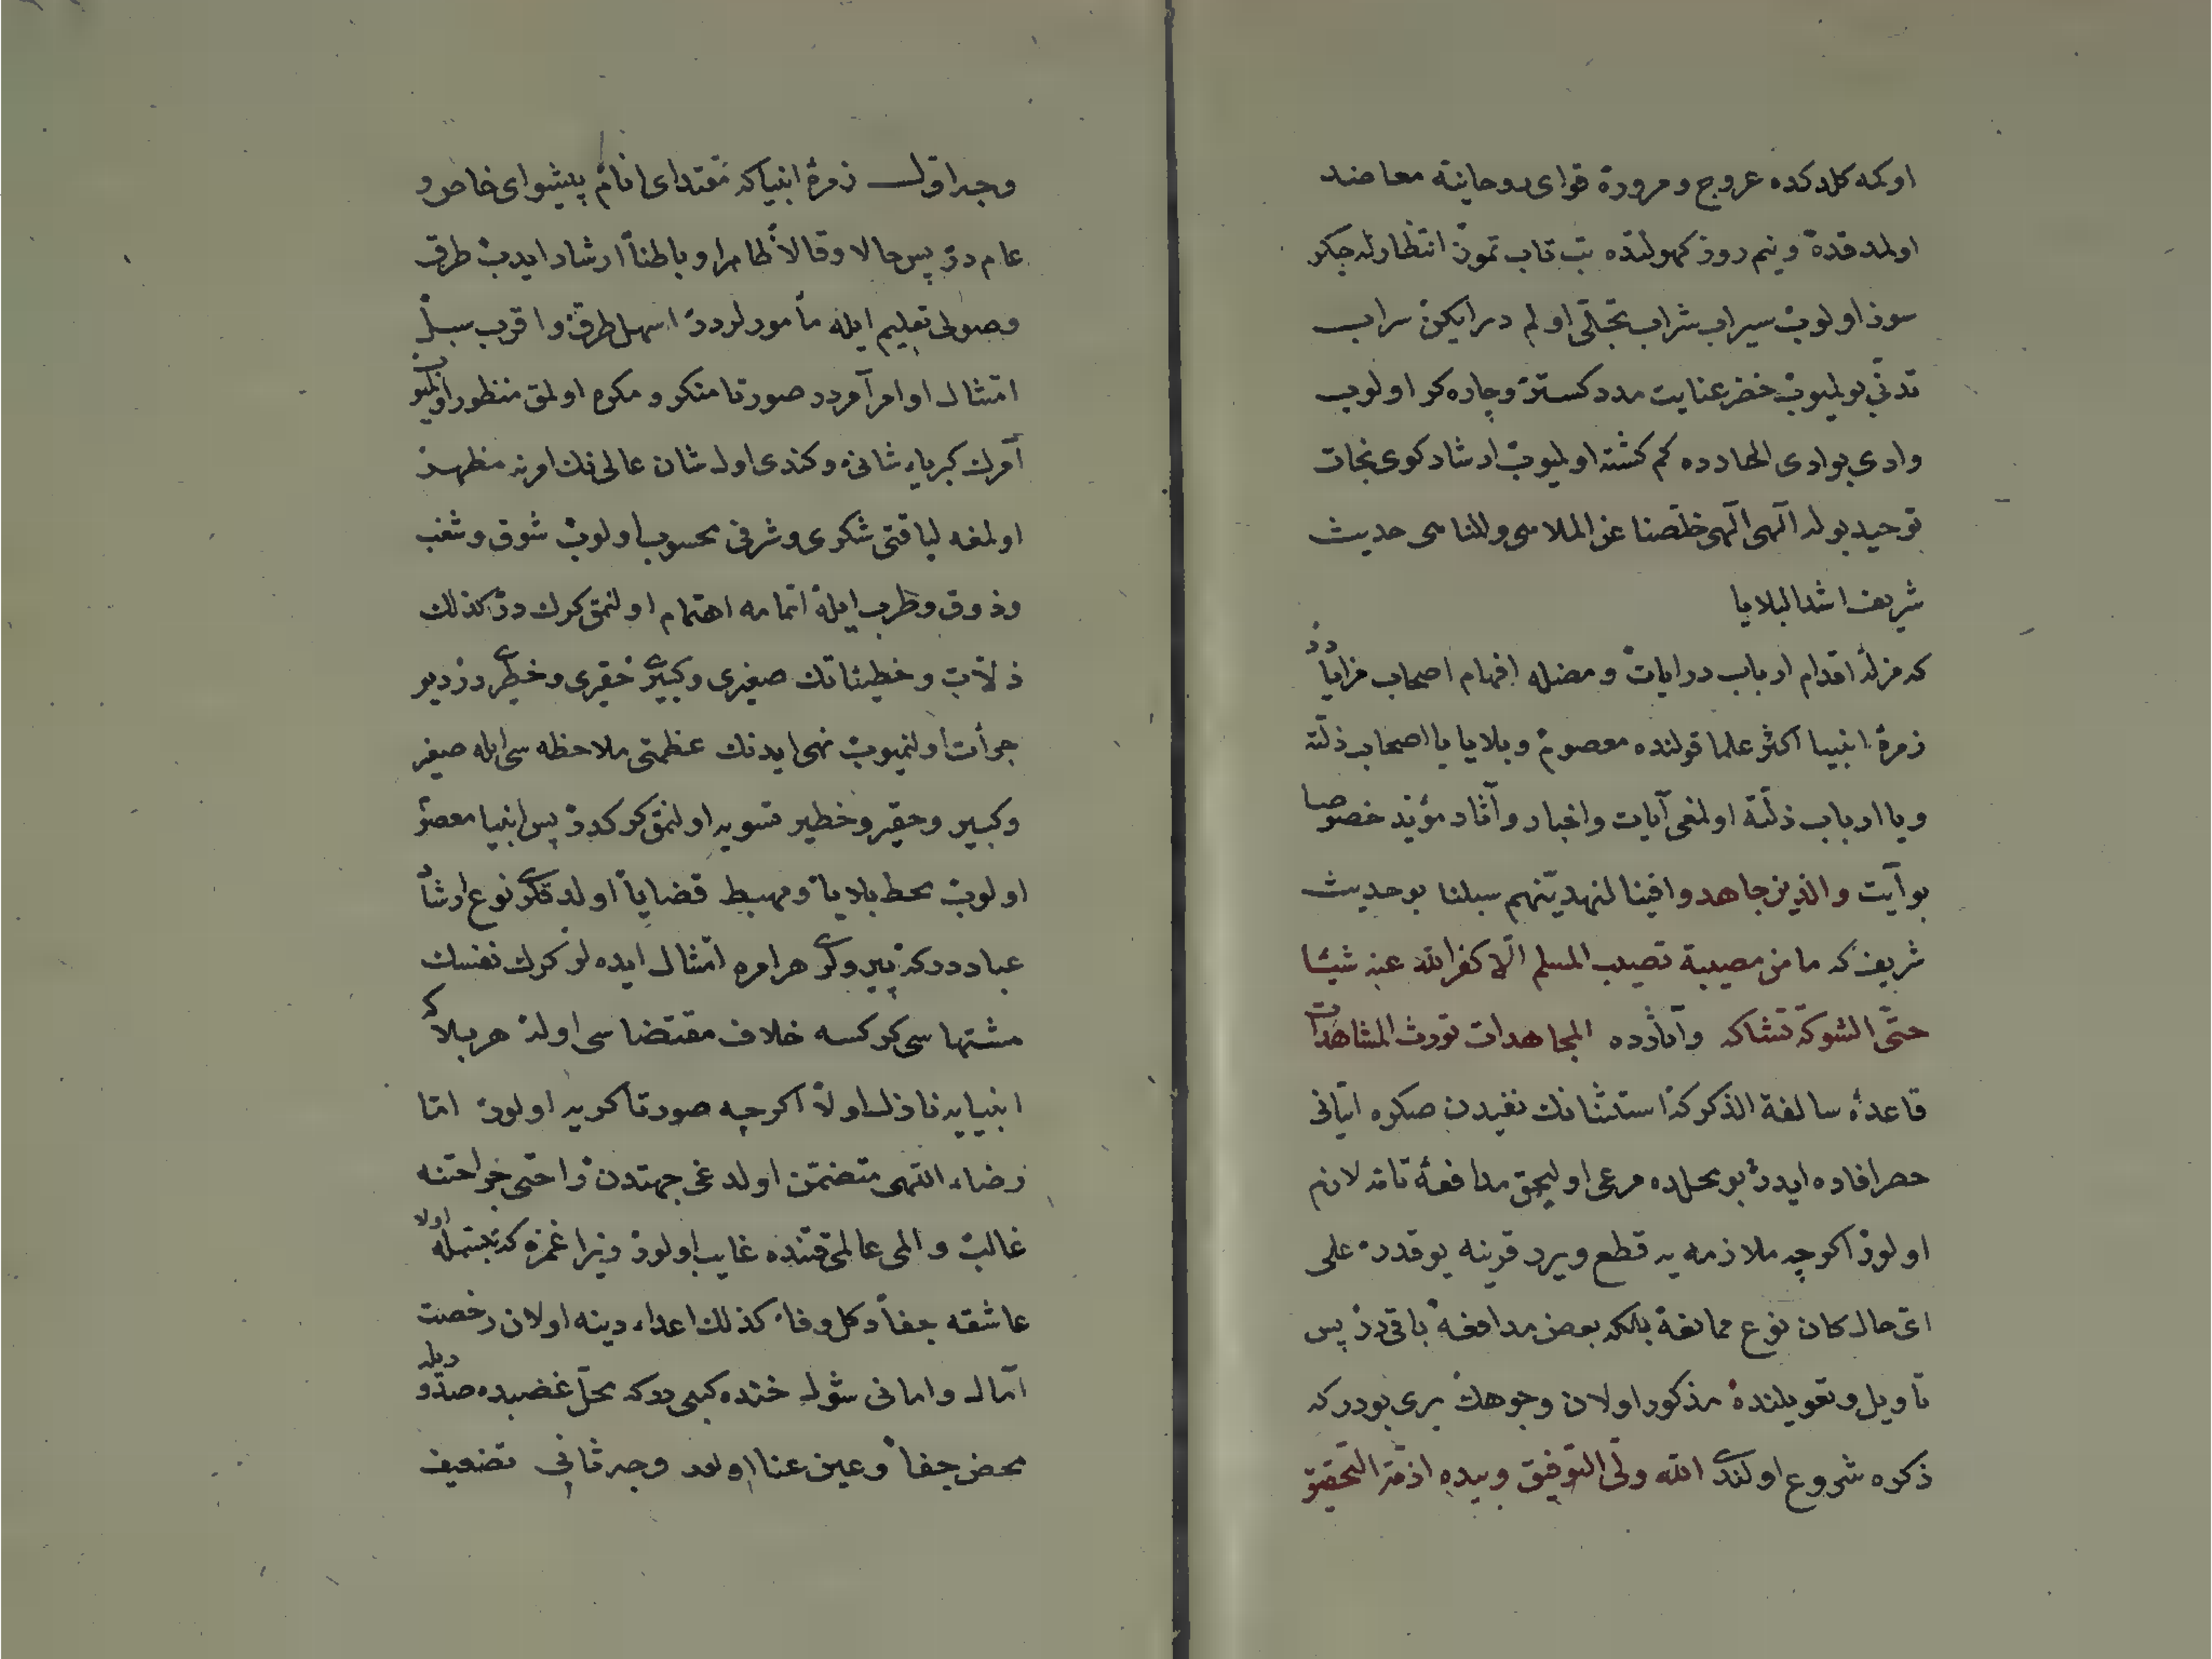 اولمه كلدكده عروج و مروره قوای روحانیه معاضد
اولمدقده و نیم روز كهولتده تب تاب تموز انتظارله جكر
سوز اولوب سیراب شراب تجلی اولم دیرایكن سراب
تدنی بولیوب خضر عنایت مدد كستر و چاره كر اولوب
وادی بوادی الحادده كم كشته اولیوب ارشاد كوی نجات
توحید بوله الهی الهی خلصنا عن الملاهی والمناهی حدیث
شریف اشد البلایا
كه مزلۀ اقدام ارباب درایات و مضله افهام اصحاب مزایادر
زمرۀ انبیا اكثر علما قولنده معصوم و بلایا یا اصحاب ذلته
ویا ارباب زلته اولمغی آیات واخبار وآثار مؤید خصوصا
بو آیت والذین جاهدوا فینا لنهدینهم سبلنا بو حدیث
شریف كه ما من مصیبة تصیب المسلم الا كفر الله عنه شیئا
حتی الشوكة تشاكه وآثارده المجاهدات تورث المشاهدات
قاعدۀ سالفة الذكر كه استثنانك نفیدن صكره اتیانی
حصر افاده ایدر بو محلده مرعی اولیجق مدافعۀ تامه لازم
اولور اكرچه ملازمه یه قطع ویرر قرینه یوقدر علی
ای حال كان نوع ممانعه بلكه بعض مدافعه باقیدر پس
تاویل و تعویلنده مذكور اولان وجوهك بری بودر كه
ذكره شروع اولندی الله ولی التوفیق وبیده ازمة التحقیق
وجه اول زمرۀ انبیا كه مقتدای انام پیشوای خاص و
عام در پس حالا وقالا ظاهرا و باطنا ارشاد ایدب طرق
وصولی تعلیم ایله مأمورلردر اسهل طرق و اقرب سبل
امتثال اوامر آمردر صورتا منكر و مكره اولمق منظور اولمیوب
آمرك كبریاء شانی و كندی اوله شان عالینك امرینه مظهر
اولمغه لیاقتی شكری و شرفی محسوب اولوب شوق و شغب
وذوق و طرب ایله اتمامه اهتمام اولنمق كرك در كذلك
ذلات و خطیئاتك صغیری و كبیری حقیری و خطیری در دیو
جرأت اولنمیوب نهی ایدنك عظمتی ملاحظه سی ایله صغیر
وكبیر و حقیر و خطیر تسویه اولنمق كركدر پس انبیا معصوم
اولوب محط بلایا و مهبط قضایا اولدقلری نوع ارشاد
عباددر كه پیرولری هر امره امتثال ایده لر كرك نفسك
مشتهاسی كركسه خلاف مقتضاسی اوله هر بلا كه
انبیایه نازل اولا اكرچه صورتا كریه اولور اما
رضاء الٰهی متضمن اولدغی جهتدن راحتی جراحتنه
غالب و المی عالمی قتنده غایب اولور زیرا غمزه كه تبسمله اولا
عاشقه جفا دكل وفا كذلك اعداء دینه اولان رخصت
آمال و امانی شول خنده كبی در كه محل غضبده صدور بله
محض جفا و عین عنا اولور وجه ثانی تضعیف